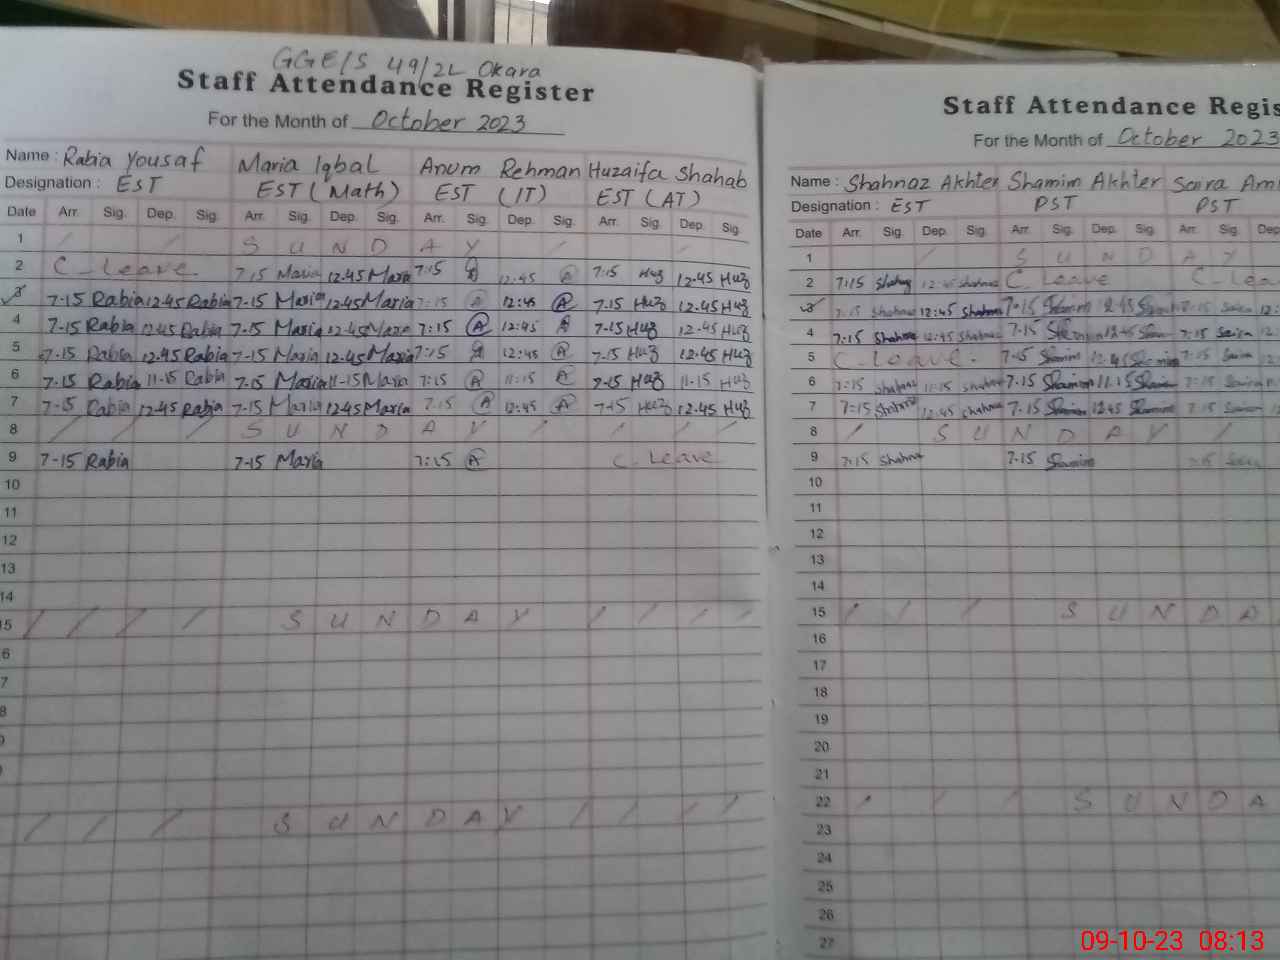 GGE/S 49/2L Okara
Staff Attendance Register
For the Month of October 2023
Name : Rabia Yousaf Maria Iqbal Anum Rehman Huzaifa Shahab
Designation : EST EST (Math) EST (IT) EST (AT)
Date Arr. Sig. Dep. Sig. Arr. Sig. Dep. Sig. Arr. Sig. Dep. Sig. Arr. Sig. Dep. Sig.
1 / / S U N D A Y / /
2 C-Leave 7:15 Maria 12.45 Maria 7:15 A 12:45 A 7:15 Huz 12.45 Huz
3 7-15 Rabia 12.45 Rabia 7-15 Maria 12.45 Maria 7:15 A 12:45 A 7.15 Huz 12.45 Huz
4 7-15 Rabia 12.45 Rabia 7-15 Maria 12.45 Maria 7:15 A 12:45 A 7-15 Huz 12.45 Huz
5 7-15 Rabia 12.45 Rabia 7-15 Maria 12.45 Maria 7:15 A 12:45 A 7-15 Huz 12.45 Huz
6 7-15 Rabia 11-15 Rabia 7-15 Maria 11-15 Maria 7:15 A 11:15 A 7-15 Huz 11.15 Huz
7 7-15 Rabia 12.45 Rabia 7-15 Maria 12.45 Maria 7.15 A 12:45 A 7-15 Huz 12.45 Huz
8 / / / / S U N D A Y / / / /
9 7-15 Rabia 7-15 Maria 7:15 A C. Leave
10
11
12
13
14
5 / / / / S U N D A Y / / / /
6
7
8
/ / / S U N D A Y / / / /
Staff Attendance Regis
For the Month of October 2023
Name : Shahnaz Akhter Shamim Akhter Saira
Designation : EST PST PST
Date Arr. Sig. Dep. Sig. Arr. Sig. Dep. Sig. Arr. Sig. Dep
1 / S U N D A Y
2 7:15 Shahnaz 12:45 Shahnaz C. Leave C-Lea
3 7:15 Shahnaz 12:45 Shahnaz 7-15 Shamim 12.45 Shamim 7:15 Saira 12:
4 7:15 Shahnaz 12:45 Shahnaz 7-15 Shamim 12.45 Shamim 7:15 Saira 12
5 C. Leave. 7-15 Shamim 12.45 Shamim 7:15 Saira 12
6 7:15 Shahnaz 11:15 Shahnaz 7.15 Shamim 11.15 Shamim 7:15 Saira
7 7:15 Shahnaz 12:45 Shahnaz 7.15 Shamim 12.45 Shamim 7:15 Saira 12
8 / S U N D A Y /
9 7:15 Shahnaz 7.15 Shamim 7:15 Saira
10
11
12
13
14
15 / / / S U N D A
16
17
18
19
20
21
22 / / / S U N D A
23
24
25
26
27
09-10-23 08:13